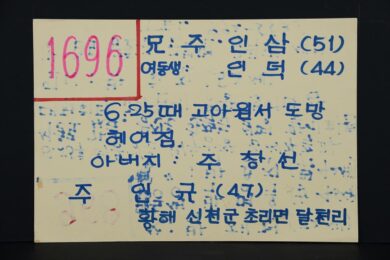 1696
兄 주인삼 (51)
여동생 인덕 (44)
6.25때 고아원서 도망
헤어짐
아버지 주창선
주인규 (47)
황해 신천군 초리면 달천리